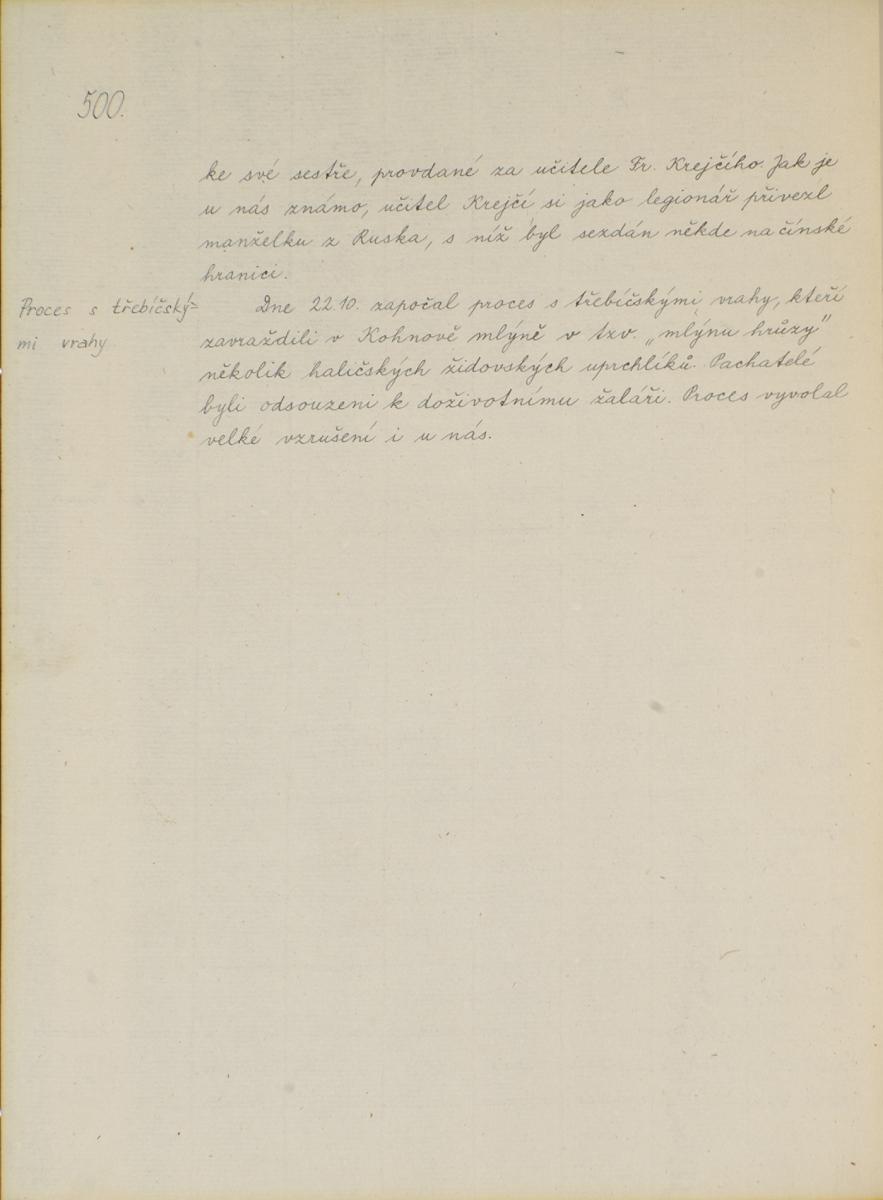 500.
ke své sestře, provdané za učitele Fr. Krejčího. Jak je
u nás známo, učitel Krejčí si jako legionář přivezl
manželku z Ruska, s níž byl sezdán někde na čínské
hranici.
Proces s třebíčský=
mi vrahy
Dne 22.10. započal proces s třebíčskými vrahy, kteří
zavraždili v Kohnově mlýně v tzv. „mlýnu hrůzy"
několik haličských židovských uprchlíků. Pachatelé
byli odsouzeni k doživotnímu žaláři. Proces vyvolal
velké vzrušení i u nás.